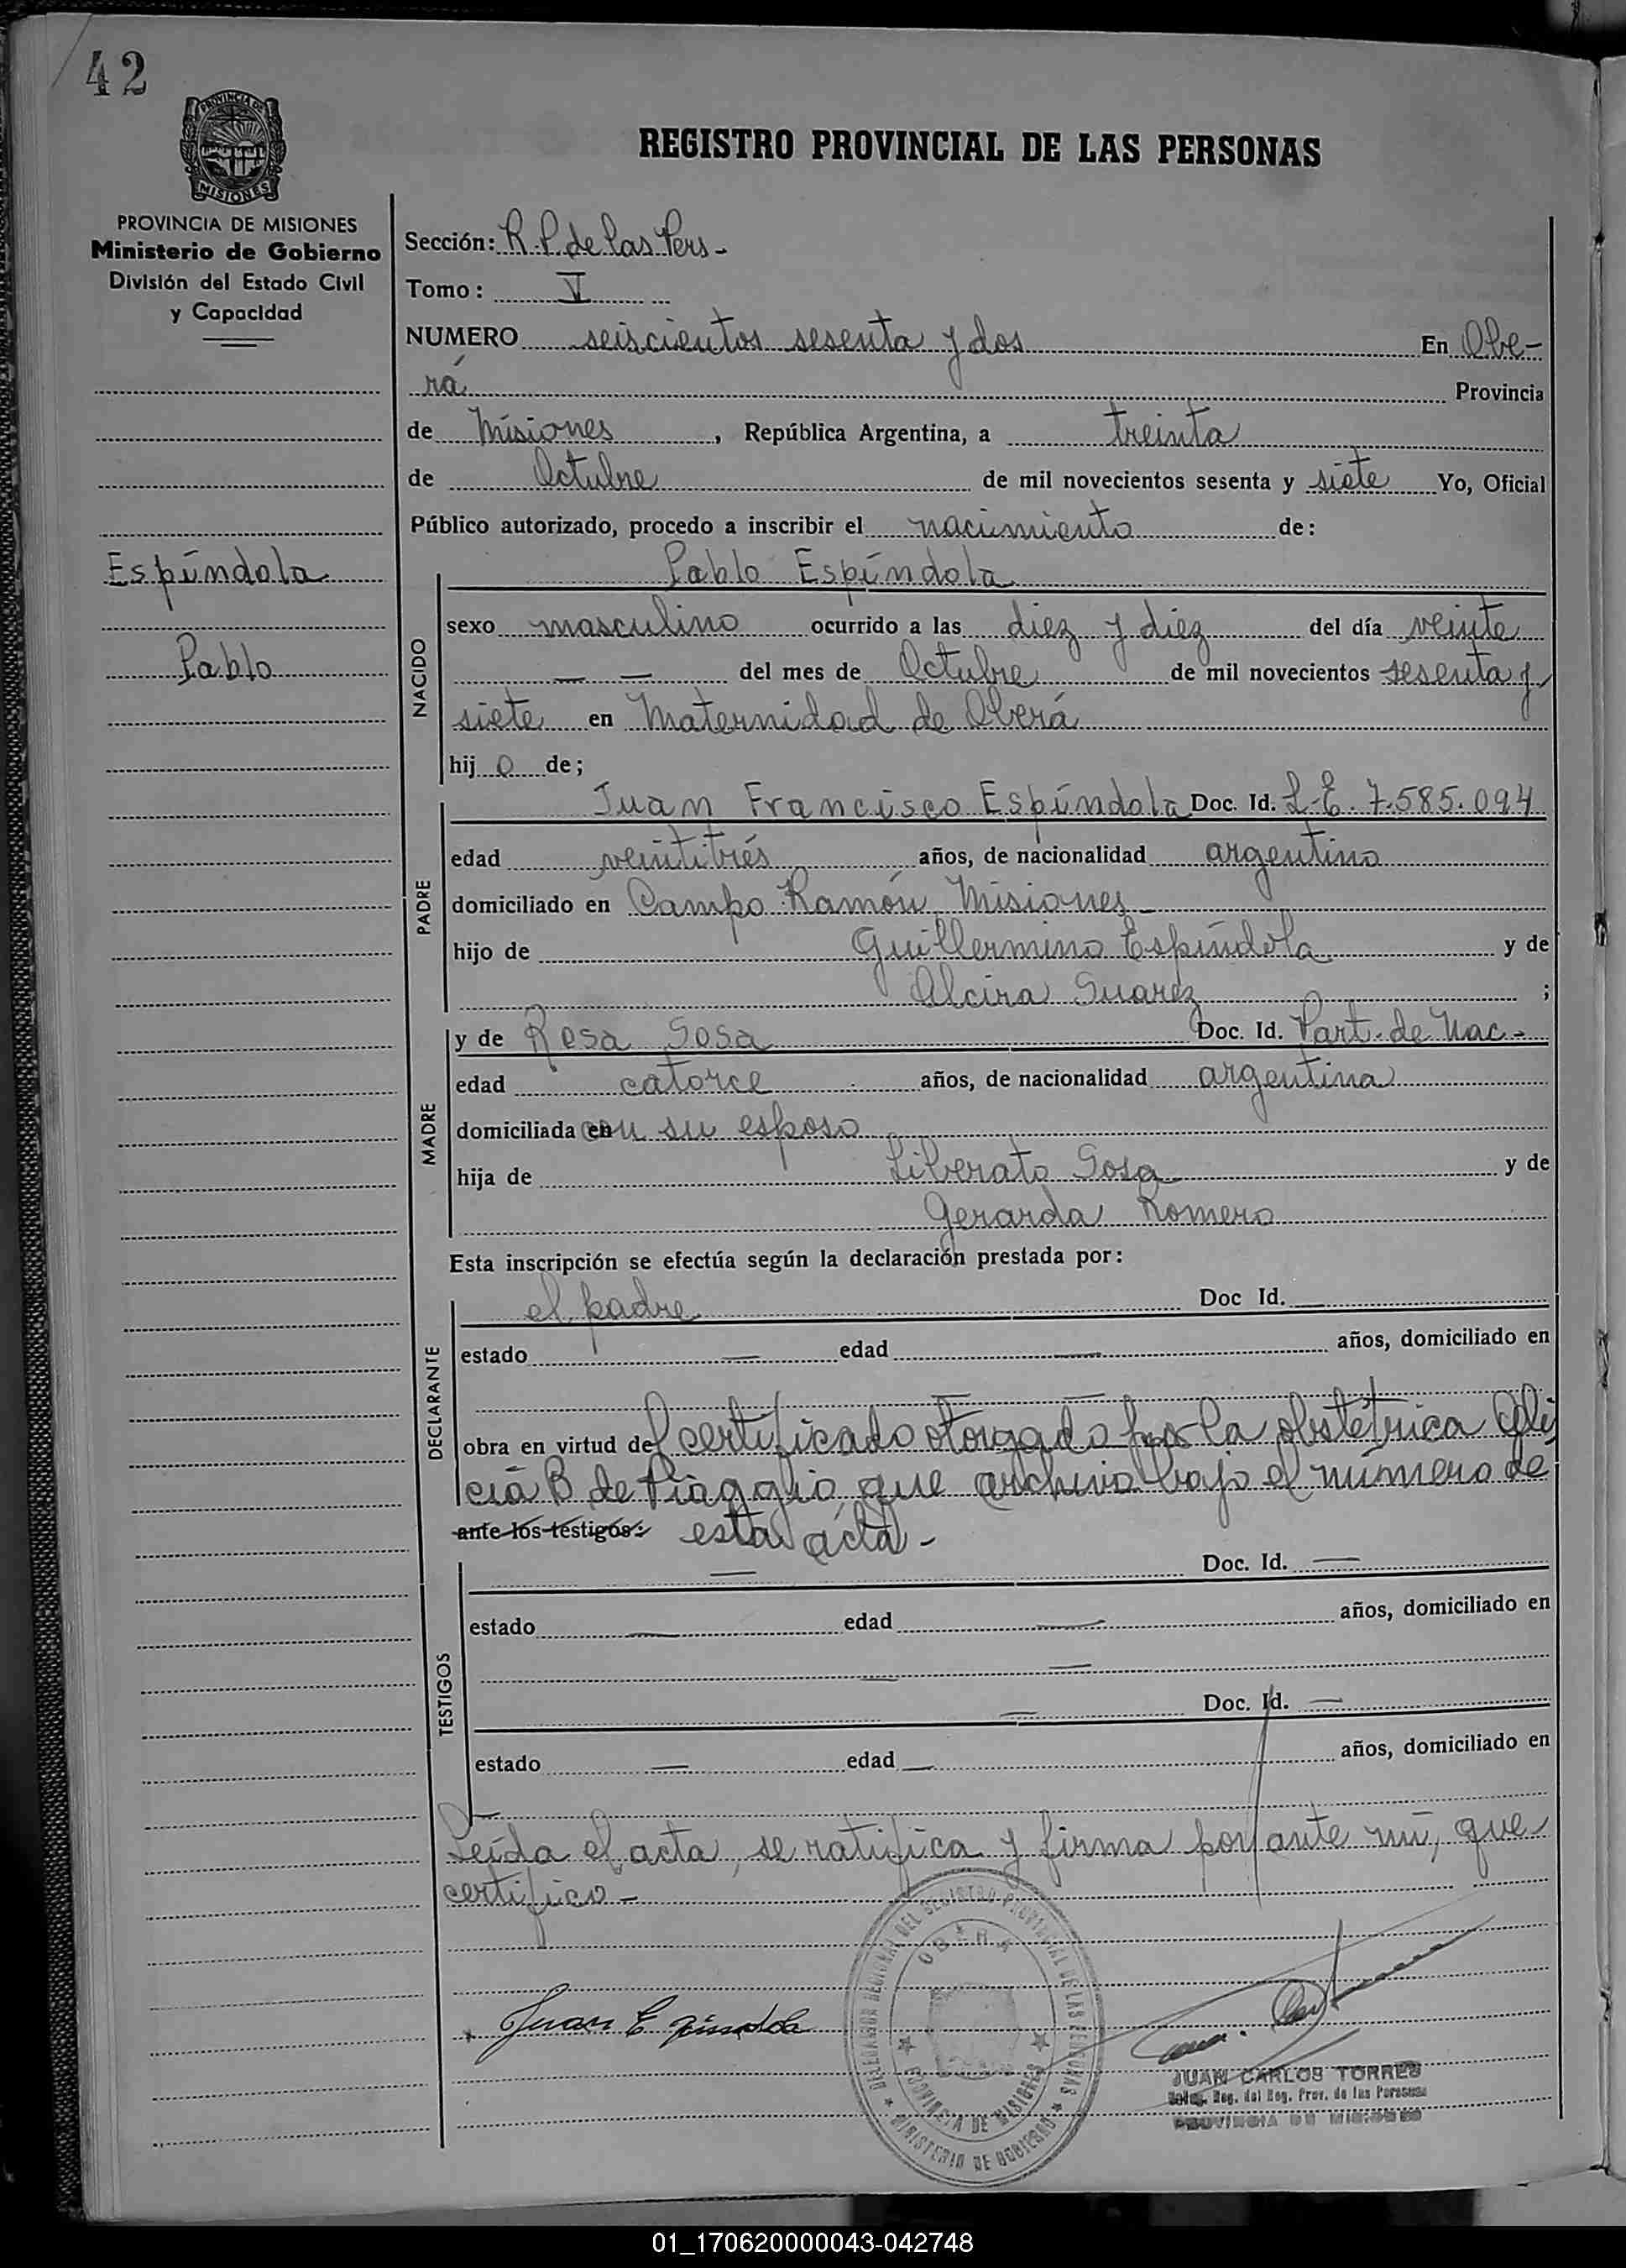 42
PROVINCIA DE
MISIONES
REGISTRO PROVINCIAL DE LAS PERSONAS
PROVINCIA DE MISIONES
Ministerio de Gobierno
División del Estado Civil
y Capacidad
Sección: R.P. de las Pers -
Tomo: V
NUMERO seiscientos sesenta y dos En Obe-
rá Provincia
de Misiones, República Argentina, a treinta
de Octubre de mil novecientos sesenta y siete Yo, Oficial
Público autorizado, procedo a inscribir el nacimiento de:
Espíndola
Pablo
NACIDO
Pablo Espíndola
sexo masculino ocurrido a las diez y diez del día veinte
— — del mes de Octubre de mil novecientos sesenta y
siete en Maternidad de Oberá
hijo de;
PADRE
Juan Francisco Espíndola Doc. Id. L.E. 7.585.094
edad veintitrés años, de nacionalidad argentino
domiciliado en Campo Ramón Misiones
hijo de Guillermino Espíndola y de
Alcira Suarez ;
MADRE
y de Rosa Sosa Doc. Id. Part. de Nac -
edad catorce años, de nacionalidad argentina
domiciliada con su esposo
hija de Liberato Sosa y de
Gerarda Romero
Esta inscripción se efectúa según la declaración prestada por:
DECLARANTE
el padre Doc Id. —
estado — edad — años, domiciliado en
— —
obra en virtud del certificado otorgado por la obstétrica
B de Piaggio que archivo bajo el número de
ante los testigos: esta acta -
TESTIGOS
— Doc. Id. —
estado — edad — años, domiciliado en
— —
— Doc. Id. —
estado — edad — años, domiciliado en
—
Leída el acta, se ratifica y firma por ante mí, que
certifico -
DELEGACION REGIONAL DEL REGISTRO PROVINCIAL DE LAS PERSONAS
OBERA
PROVINCIA DE MISIONES
MINISTERIO DE GOBIERNO
Juan Espindola
JUAN CARLOS TORRES
Reg. del Reg. Prov. de las Personas
PROVINCIA DE MISIONES
01_170620000043-042748